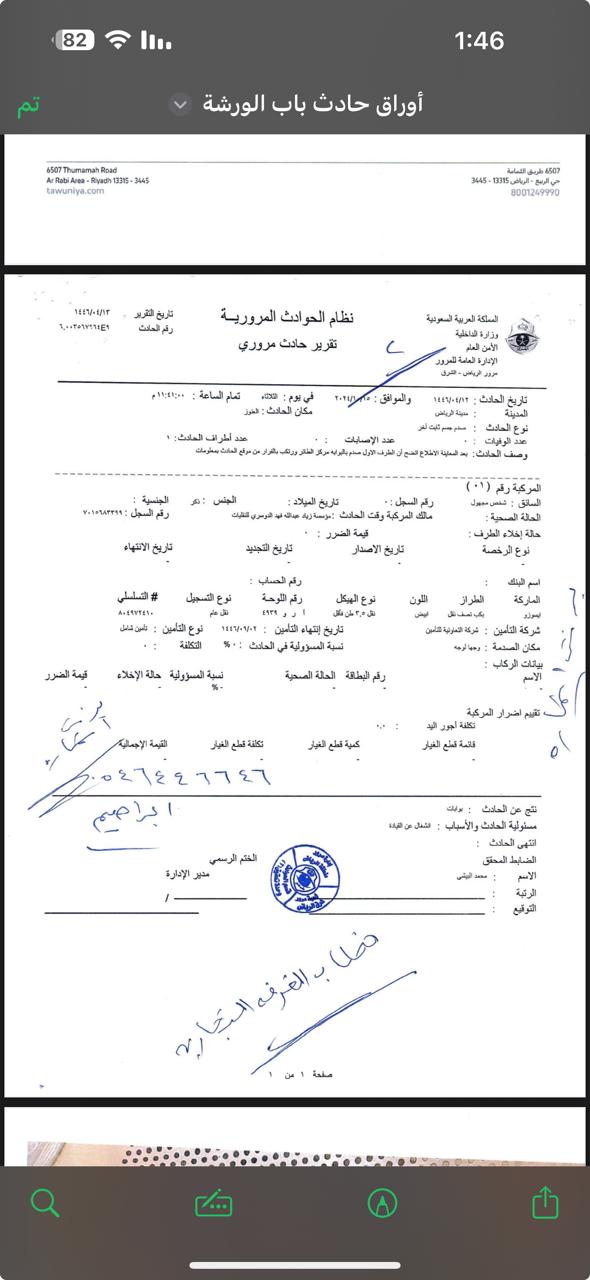 82
1:46
أوراق حادث باب الورشة
تم
6507 Thumamah Road
Ar Rabi Area - Riyadh 13315 - 3445
tawuniya.com
6507 طريق الثمامة
حي الربيع - الرياض 13315 - 3445
8001249990
المملكة العربية السعودية
وزارة الداخلية
الأمن العام
الإدارة العامة للمرور
مرور الرياض - الشرق
نظام الحوادث المرورية
تقرير حادث مروري
تاريخ التقرير ١٤٤٦/٠٤/١٣
رقم الحادث
تاريخ الحادث : ١٤٤٦/٠٤/١٢ والموافق : في يوم : الثلاثاء تمام الساعة : ١١:٤١:٠٠ م
المدينة : مدينة الرياض مكان الحادث :
نوع الحادث : صدم جسم ثابت آخر
عدد الوفيات : ٠ عدد الإصابات : ٠ عدد أطراف الحادث : ١
وصف الحادث : بعد المعاينة الاطلاع اتضح أن الطرف الاول صدم بالبوابه مركز الطائر وراتكب بالفرار من موقع الحادث بمعلومات
المركبة رقم (٠١)
السائق : شخص مجهول رقم السجل : ٠ تاريخ الميلاد : الجنس : ذكر الجنسية :
الحالة الصحية : مالك المركبة وقت الحادث : مؤسسة زياد عبدالله فهد الدوسري للنقليات رقم السجل : ٧٠١٥٦٨٣٣٩٩
حالة إخلاء الطرف : قيمة الضرر : ٠
نوع الرخصة تاريخ الاصدار تاريخ التجديد تاريخ الانتهاء
- - - -
اسم البنك : رقم الحساب :
الماركة الطراز اللون نوع الهيكل رقم اللوحة نوع التسجيل # التسلسلي
ايسوزو بكب نصف نقل ابيض نقل ٣,٥ طن فأقل ا ر و ٤٩٣٩ نقل عام ٨٠٤٩٧٢٤١٠
شركة التأمين : شركة التعاونية للتأمين تاريخ إنتهاء التأمين : ١٤٤٦/٠٩/٠٢ نوع التأمين : تأمين شامل
مكان الصدمة : وجها لوجه نسبة المسؤولية في الحادث : ٠% التكلفة : ٠
بيانات الركاب :
الاسم رقم البطاقة الحالة الصحية نسبة المسؤولية حالة الإخلاء قيمة الضرر
- - - -% - -
تقييم اضرار المركبة
تكلفة أجور اليد : ٠,٠
قائمة قطع الغيار كمية قطع الغيار تكلفة قطع الغيار القيمة الإجمالية
٠٥٤٦٤٤٦٦٤٦
ابراهيم
نتج عن الحادث : بوابات
مسئولية الحادث والأسباب : انشغال عن القيادة
انتهى الحادث :
الضابط المحقق الختم الرسمي
الاسم : محمد البيشي مدير الإدارة
الرتبة : /
التوقيع :
خطاب الغرفه التجاريه
صفحة ١ من ١